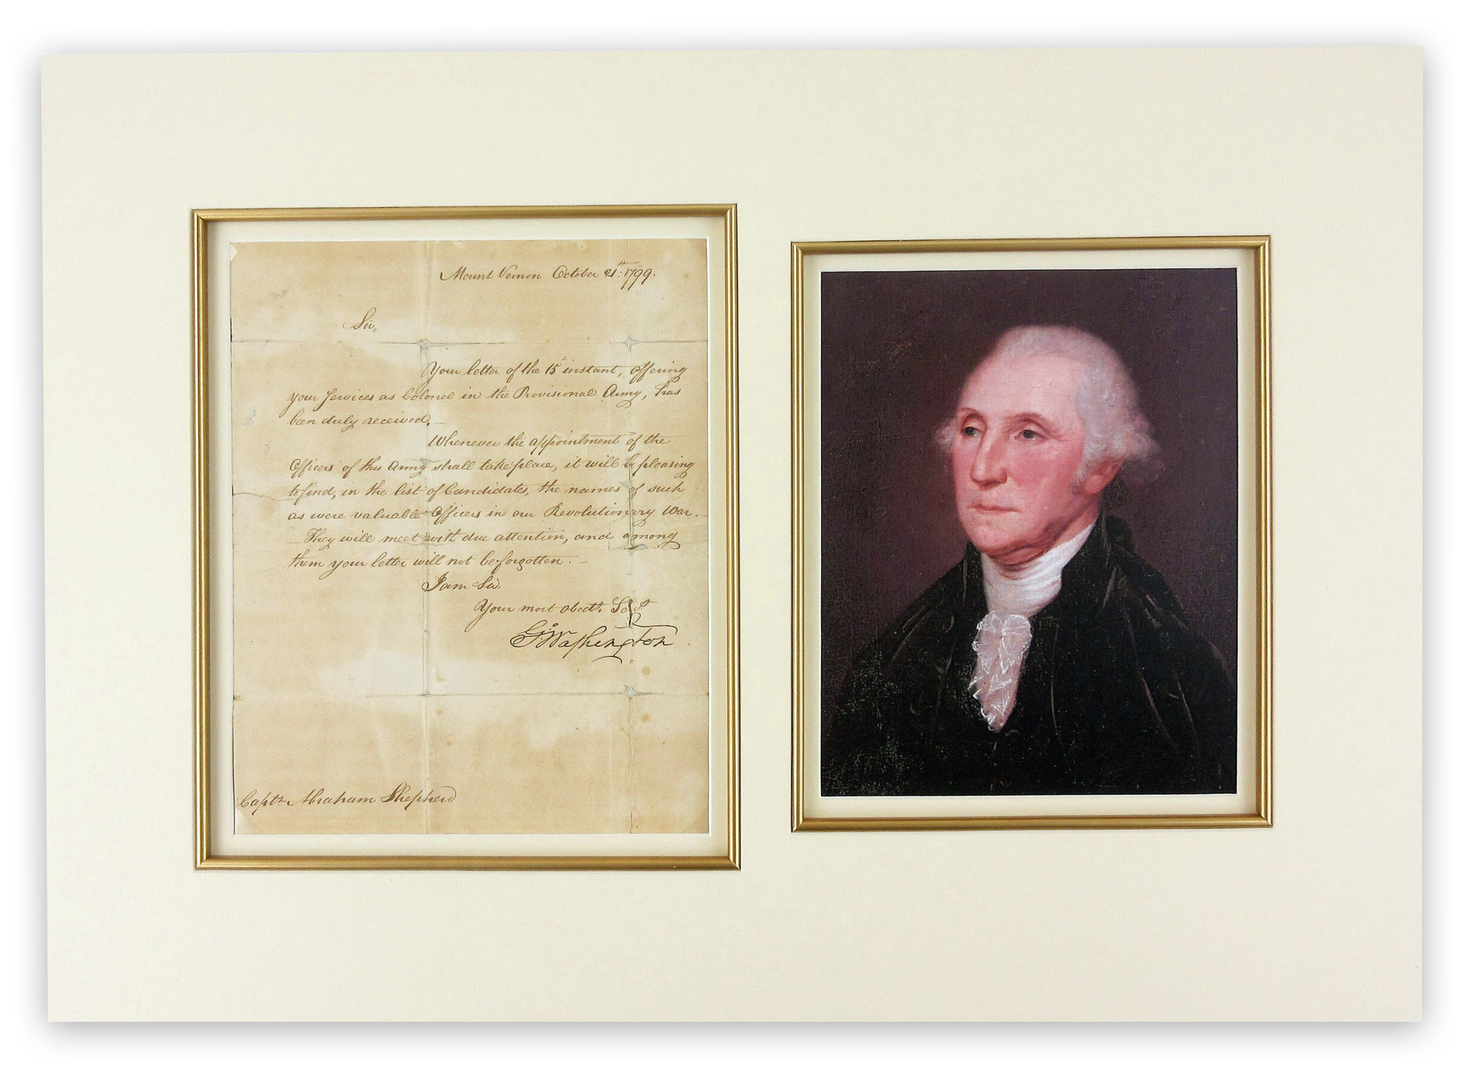 Mount Vernon October 21st: 1799.
Sir,
Your letter of the 15th instant, offering
your Services as Colonel in the Provisional Army, has
been duly received. —
Whenever the appointment of the
Officers of this Army shall take place, it will be pleasing
to find, in the list of Candidates, the names of such
as were valuable Officers in our Revolutionary War. —
They will meet with due attention, and among
them your letter will not be forgotten. —
I am Sir.
Your most obedt. Servt
Go Washington
Captn Abraham Shepherd